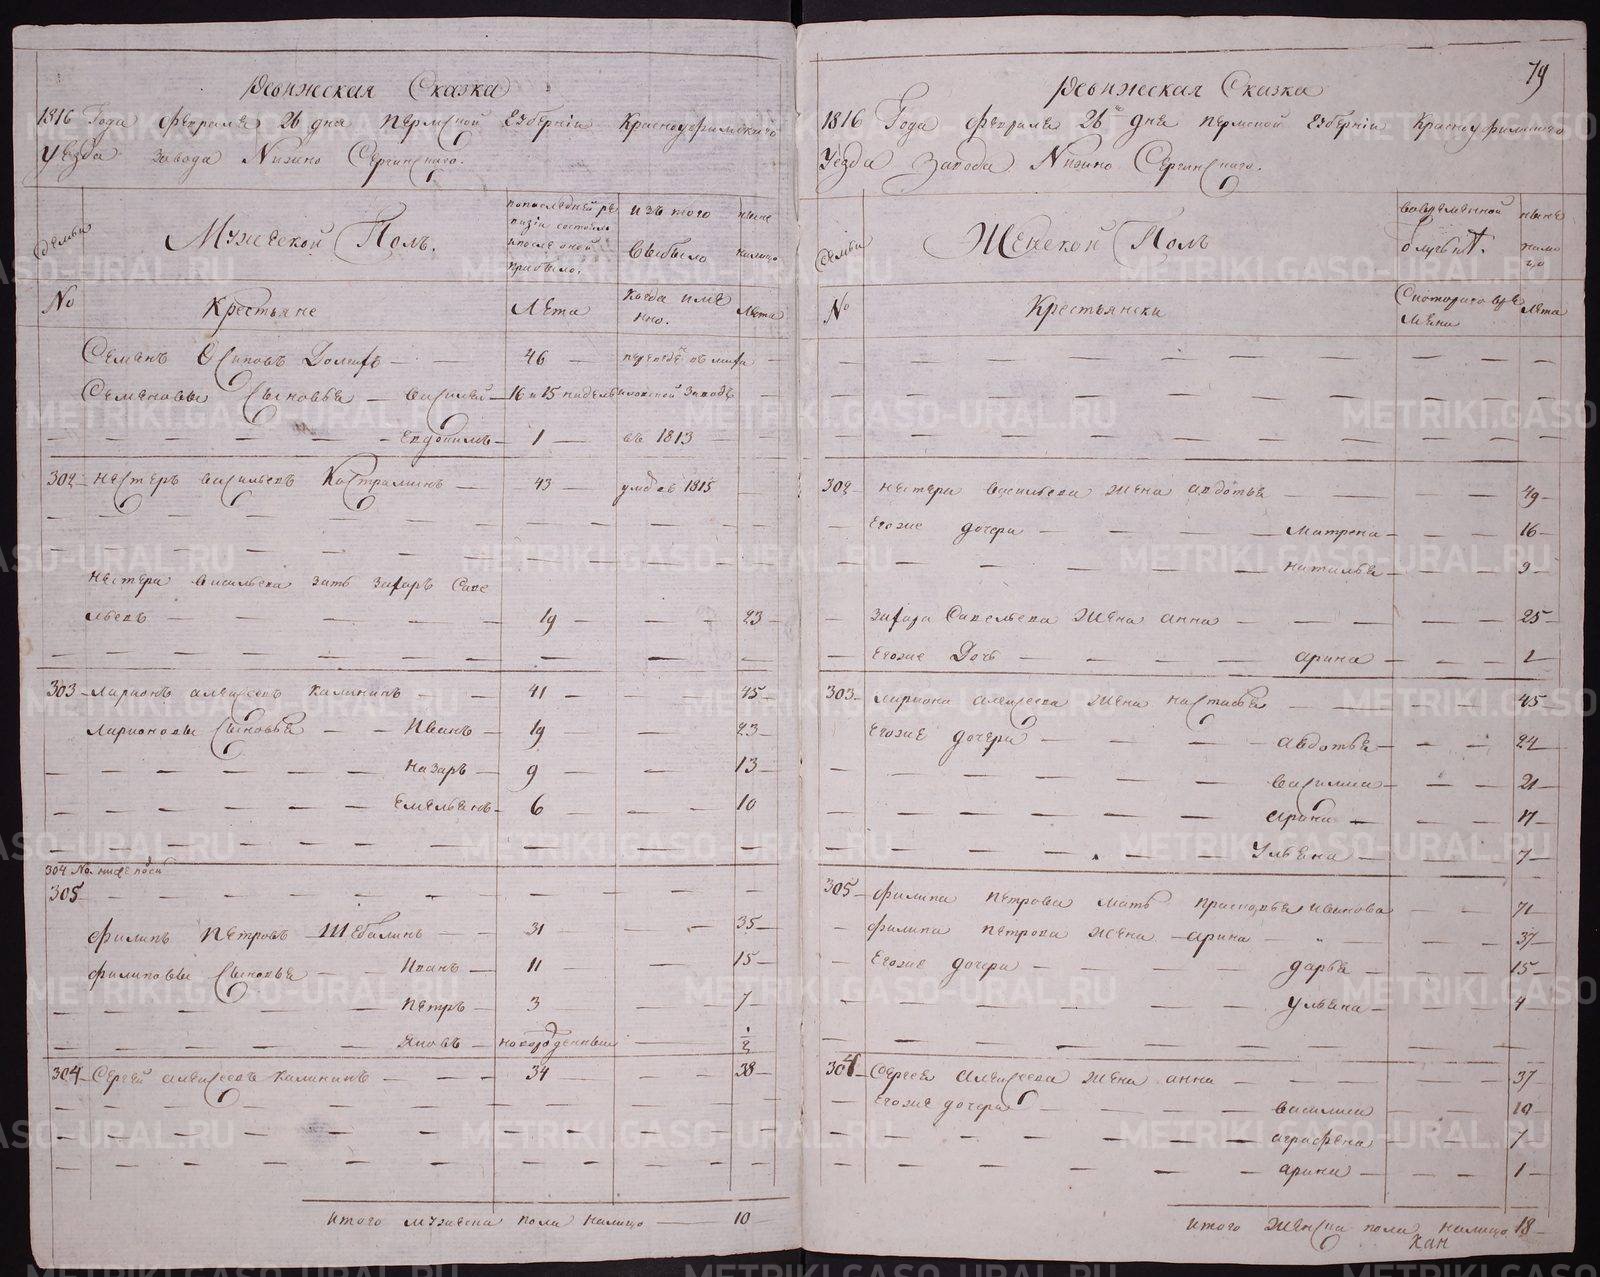 Ревижская Сказка
1816 Года Февраля 26 дня Пермской Губернiи Красноуфимскаго
Уезда завода Нижно Сергинскаго.
Семьи
Мужескои Полъ.
попоследней ре
визiи состояло
ипосле оной
прибыло.
изъ того
выбыло
ныне
налицо
№
Крестьяне
Лета
когда имя
нно.
Лета
Семенъ Осиповъ
46
Семеновы Сыновья Василей
16
Евдокимъ
1
въ 1813
302 Нестеръ Васильевъ Костраминъ
43
1815
Нестера Васильева зять Захаръ Саве
льевъ
19
23
303 Ларионъ Алексеевъ Калининъ
41
45
Ларионовы Сыновья Иванъ
19
23
Назаръ
9
13
Емельянъ
6
10
304 №
305
Филипъ Петровъ Шебалинъ
31
35
Филиповы Сыновья Иванъ
11
15
Петръ
3
7
Яковъ
новорожденный
304 Сергей Алексеевъ Калининъ
34
38
Итого мужеска пола налицо
10
79
Ревижская Сказка
1816 Года Февраля 26 дня Пермской Губернiи Красноуфимскаго
Уезда Завода Нижно Сергинскаго.
Семьи
Женской Полъ
вовременной
отлучкѣ.
ныне
нали
цо
№
Крестьянски
Скотораго вре
мени
Лета
302 Нестера Васильева жена Авдотья
49
Егоже дочери Матрена
16
Наталья
9
Захара Савельева жена Анна
25
Егоже Дочь Арина
1
303 Лариона Алексеева жена Настасья
45
Егоже дочери Авдотья
24
Василиса
21
Арина
17
Ульяна
7
305 Филипа Петрова мать Прасковья Иванова
71
Филипа Петрова жена Арина
37
Егоже дочери Дарья
15
Ульяна
4
304 Сергея Алексеева жена Анна
37
Егоже дочери Василиса
10
Аграфена
7
Арина
1
Итого Женска пола налицо 18
METRIKI.GASO-URAL.RU